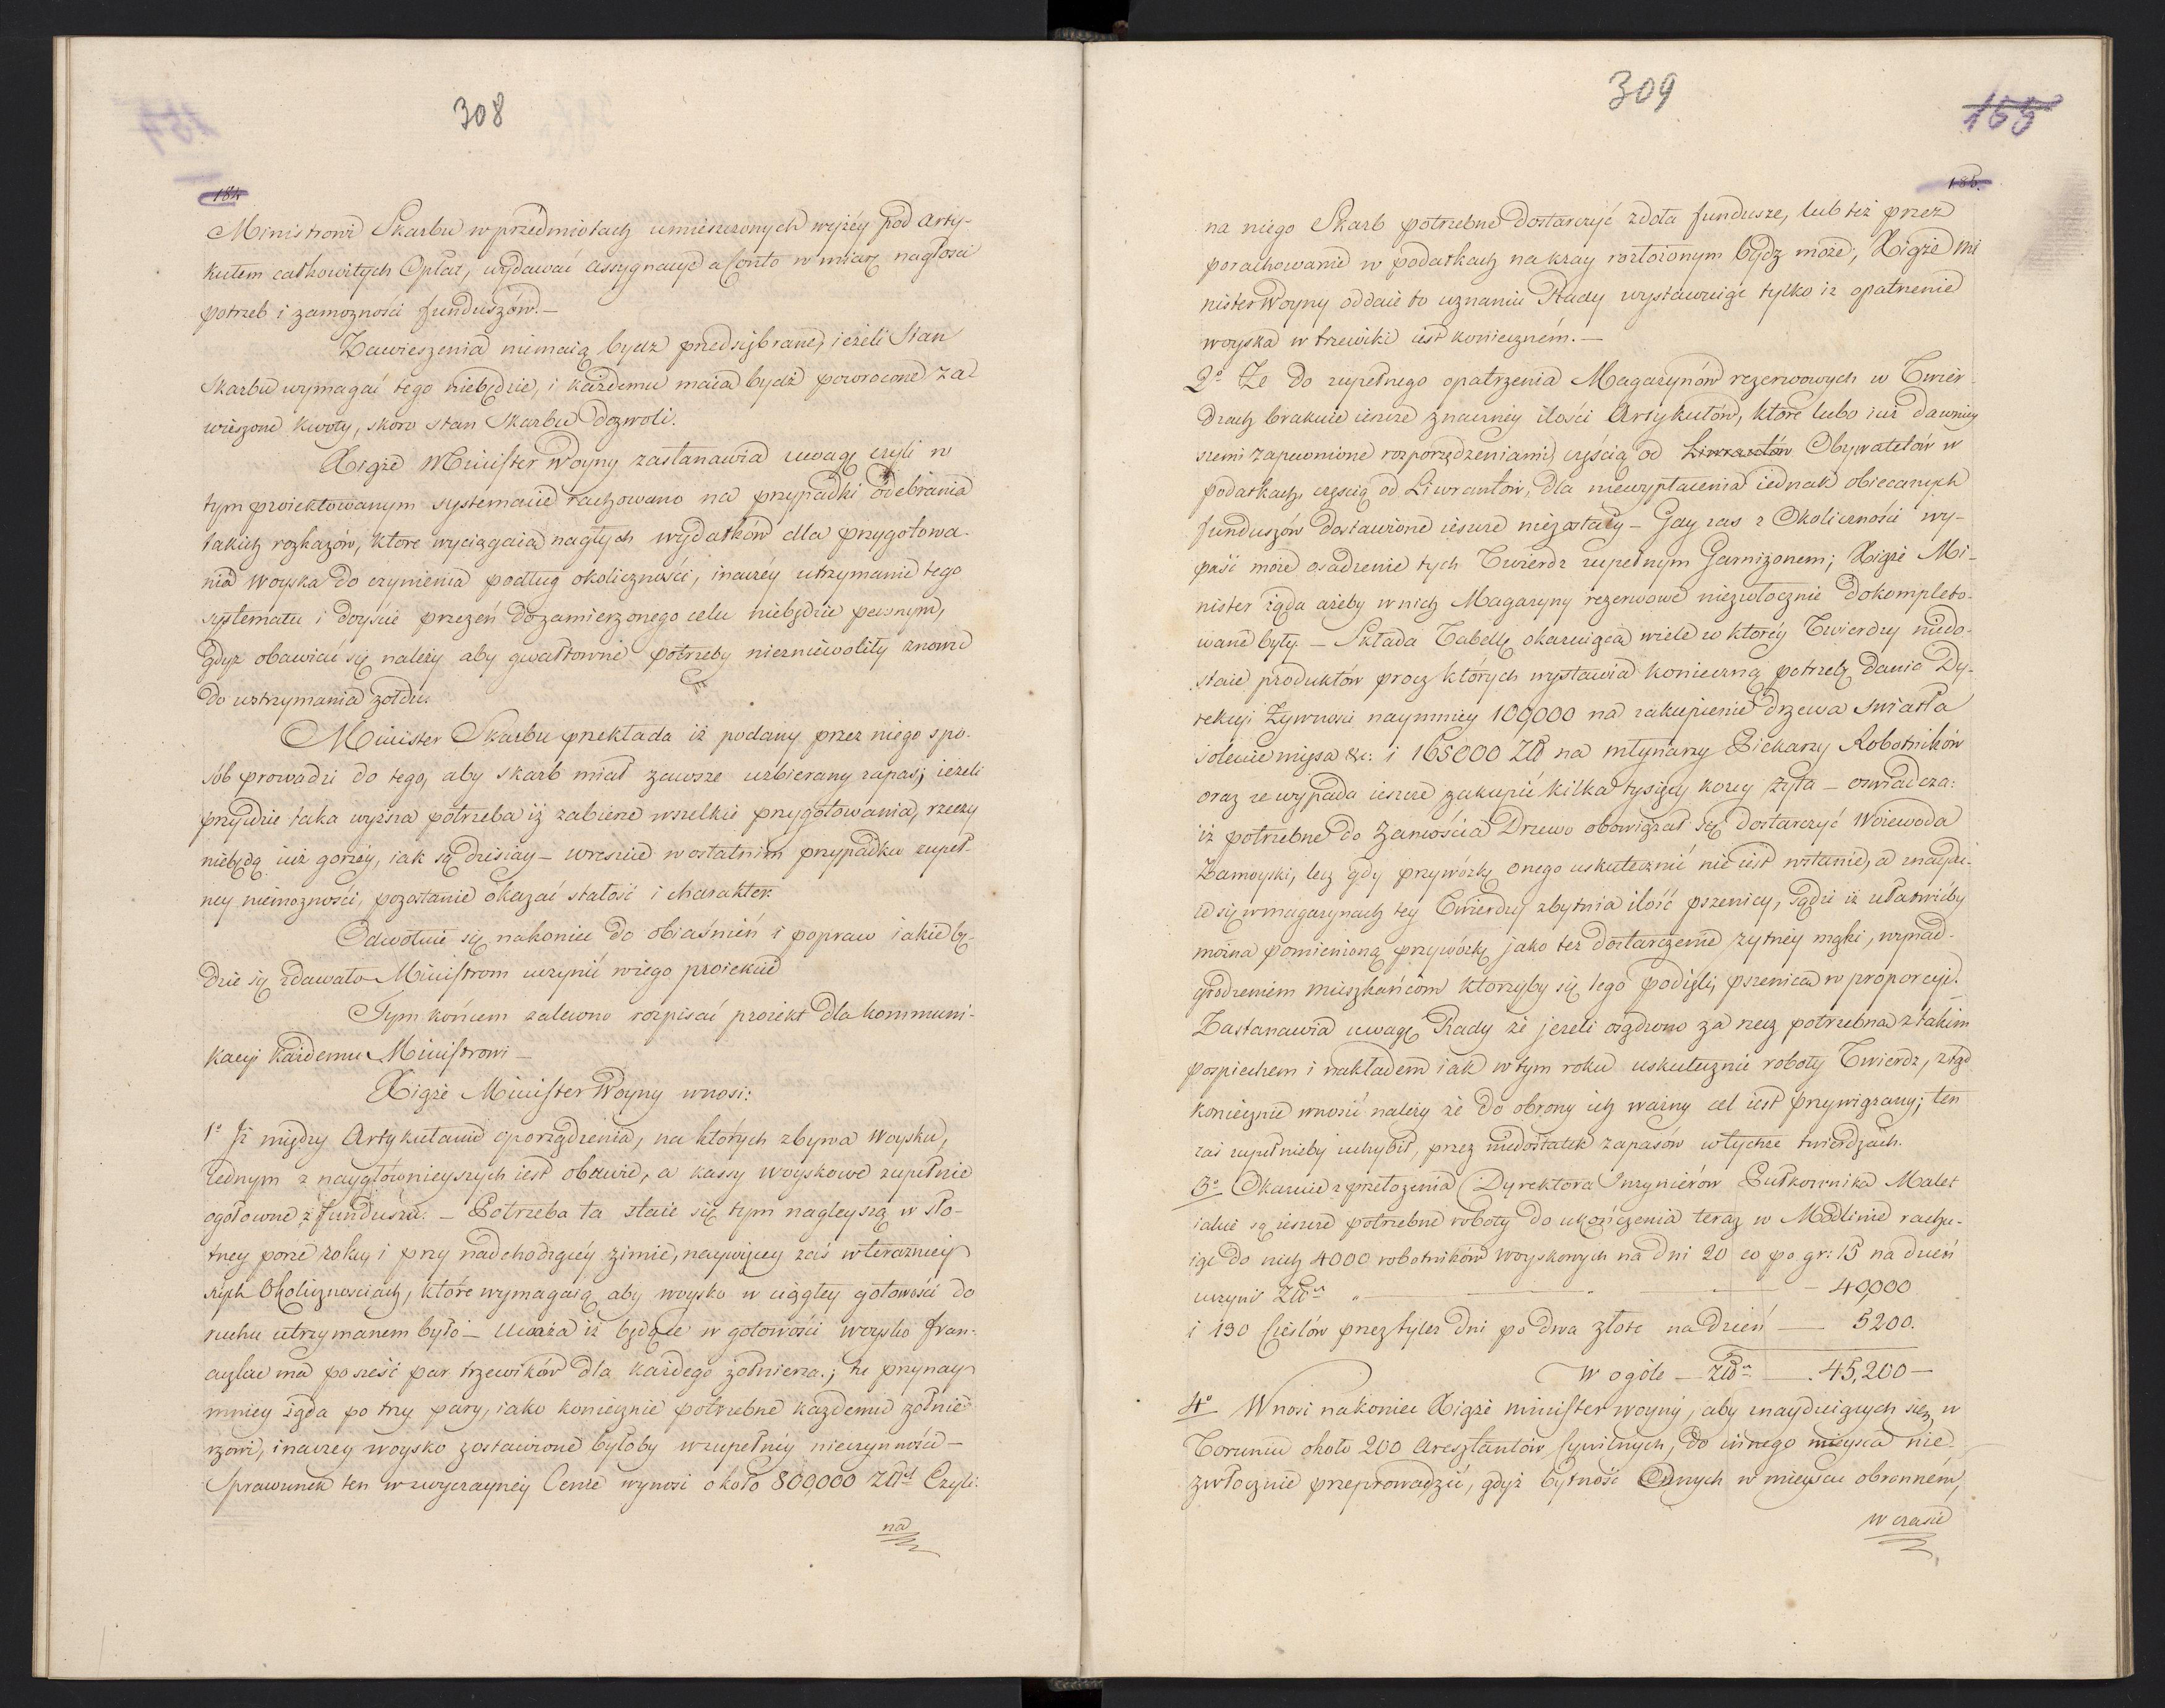 308
184
Ministrowi Skarbu w przedmiotach umieszczonych wyżéy pod Arty-
kułem całkowitych Opłat, wydawać assygnacye a Conto w miarę nagłości
potrzeb i zamożności funduszów.—
Zawieszenia niemaią bydź przedsiębrane, ieżeli Stan
Skarbu wymagać tego niebędzie, i każdemu maią bydź powrocone za-
wieszone kwoty, skoro stan Skarbu dozwoli.
Xiąże Minister Woyny zastanawia uwagę czyli w
tym proiektowanym systemacie rachowano na przypadki odebrania
takich rozkazów, ktore wyciągaią nagłych wydatków dla przygotowa-
nia Woyska do czynienia podług okoliczności, inaczéy utrzymanie tego
systematu i doyście przezeń do zamierzonego celu niebędzie pewnym,
gdyż obawiać się należy aby gwałtowne potrzeby niezniewoliły znowu
do wstrzymania żołdu.
Minister Skarbu przekłada iż podany przez niego spo-
sób prowadzi do tego, aby skarb miał zawsze uzbierany zapas; ieżeli
przyidzie taka wyższa potrzeba iż zabierze wszelkie przygotowania, rzeczy
niebędą iuż gorzéy, iak są dzisiay — wreszcie w ostatnim przypadku zupeł-
ney niemożności, pozostanie okazać stałość i charakter.
Odwołuie się nakoniec do obiaśnień i popraw iakie bę-
dzie się zdawało Ministrom uczynić w iego proiekcie
Tym końcem zalecono rozpisać proiekt dla kommuni-
kacyi każdemu Ministrowi —
Xiąże Minister Woyny wnosi:
1º Iż między Artykułami oporządzenia, na których zbywa woysku,
iednym z naygłównieyszych iest obuwie, a kassy woyskowe zupełnie
ogołocone z funduszu. — Potrzeba ta staie się tym nagleyszą w sło-
tney porze roku i przy nadchodzącéy zimie, naywięcey zaś w terazniey-
szych Okolicznościach, które wymagaią aby woysko w ciągłey gotowości do
ruchu utrzymanem było — Uważa iż będące w gotowości woysko fran-
cuzkie ma po sześć par trzewików dla każdego żołnierza; tu przynay-
mniey żąda po trzy pary, iako koniecznie potrzebne każdemu żołnie-
rzowi, inaczey woysko zostawione byłoby w zupełnéy nieczynności —
Sprawunek ten w zwyczaynéy Cenie wynosi około 800,000 Złt Czyli:
na
309
155
185.
na niego Skarb potrzebne dostarczyć zdoła fundusze, lub też przez
porachowanie w podatkach na kray rozłożonym bydź może; Xiąże Mi
nister Woyny oddaie to uznaniu Rady wystawuiąc tylko iż opatrzenie
woyska w trzewiki iest konieczném. —
2º Że do zupełnego opatrzenia Magazynów rezerwowych w Twier-
dzach brakuie ieszcze znaczney ilości Artykułów, które lubo iuż dawniey
szemi zapewnione rozporządzeniami, częścią od Liwrantów Obywatelów w
podatkach, częścią od Liwrantów, dla niewypłacenia iednak obiecanych
funduszów dostawione ieszcze niezostały — Gdy zas z Okoliczności wy-
paść może osadzenie tych Twierdz zupełnym Garnizonem; Xiąże Mi-
nister żąda ażeby w nich Magazyny rezerwowe niezwłocznie dokompleto-
wane były. — Składa Tabellę okazuiącą wiele w któréy Twierdzy niedo-
staie produktów procz których wystawia konieczną potrzebę dania Dy-
rekcyi Żywności naymniey 100,000 na zakupienie drzewa swiatła
solenie mięsa &c: i 165000 Złt na młynarzy Piekarzy Robotników
oraz że wypada ieszcze zakupić kilka tysięcy korcy Żyta — oswiadcza:
iż potrzebne do Zamościa Drzewo obowiązał się dostarczyć Woiewoda
Zamoyski, lecz gdy przywózkę onego uskutecznić nie iest w stanie, a znaydu-
ie się w magazynach tey Twierdzy zbytnia ilość pszenicy, sądzi iż ułatwićby
można pomienioną przywózkę jako też dostarczenie żytniéy mąki, wynad-
grodzeniem mieszkańcom którzyby się tego podięli, pszenicą w proporcyi.
Zastanawia uwagę Rady że jeżeli osądzono za rzecz potrzebną z takim
pospiechem i nakładem iak w tym roku uskutecznić roboty Twierdz, ztąd
koniecznie wnosić należy że do obrony ich ważny cel iest przywiązany; ten
zaś zupełnieby uchybił, przez niedostatek zapasów w tychże twierdzach.
3º Okazuie z przełożenia Dyrektora Inżynierów Pułkownika Malet
iakie są ieszcze potrzebne roboty do ukończenia teraz w Modlinie rachu-
iąc do nich 4000 robotników woyskowych na dni 20 co po gr: 15 na dzień
uczyni Złt „ — „ — 40,000
i 130 Cieslów przez tyleż dni po dwa złote na dzień — 5200.
W ogóle — Złt — 45,200 —
4º Wnosi nakoniec Xiąże minister woyny, aby znayduiących się w
Toruniu około 200 Aresztantów Cywilnych, do innego mieysca nie-
zwłocznie przeprowadzić, gdyż bytność Onych w mieyscu obronném,
w czasie